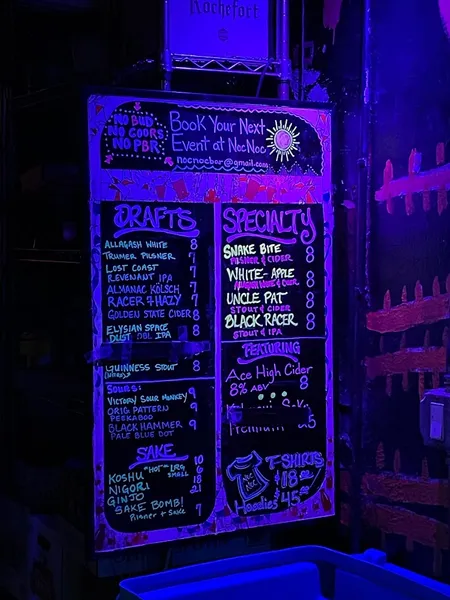 Rochefort
NO BUD
NO COORS
NO PBR
BOOK YOUR NEXT
EVENT at NocNoc
nocnocbar@gmail.com
DRAFTS
ALLAGASH WHITE 8
TRUMER PILSNER 7
LOST COAST
REVENANT IPA 7
ALMANAC KÖLSCH 7
RACER 7 HAZY 7
GOLDEN STATE CIDER 8
ELYSIAN SPACE
DUST DBL IPA 8
GUINNESS STOUT 8
(NITRO)
SOURS:
VICTORY SOUR MONKEY 9
ORIG PATTERN
PEEKABOO 9
BLACK HAMMER
PALE BLUE DOT 9
SAKE
"HOT" LRG 10
KOSHU SMALL 6
NIGORI 18
GINJO 21
SAKE BOMB!
Pilsner + Sake 7
SPECIALTY
SNAKE BITE 8
PILSNER & CIDER
WHITE-APPLE 8
UNCLE PAT 8
STOUT & CIDER
BLACK RACER 8
STOUT & IPA
FEATURING
Ace High Cider
8% ABV 8
Premium
T-SHIRTS
$18.00
NOC
NOC
Hoodies
45.00